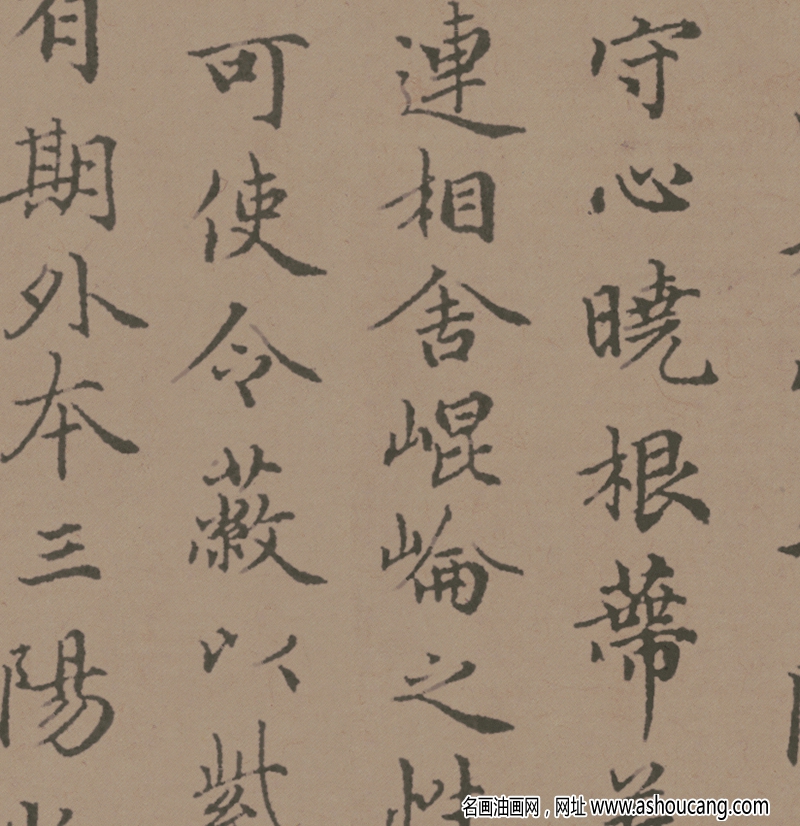 守心曉根蔕
連相舎崐崘之性
可使令蔽以紫
有期外本三陽
名画油画网，网址 www.ashoucang.com